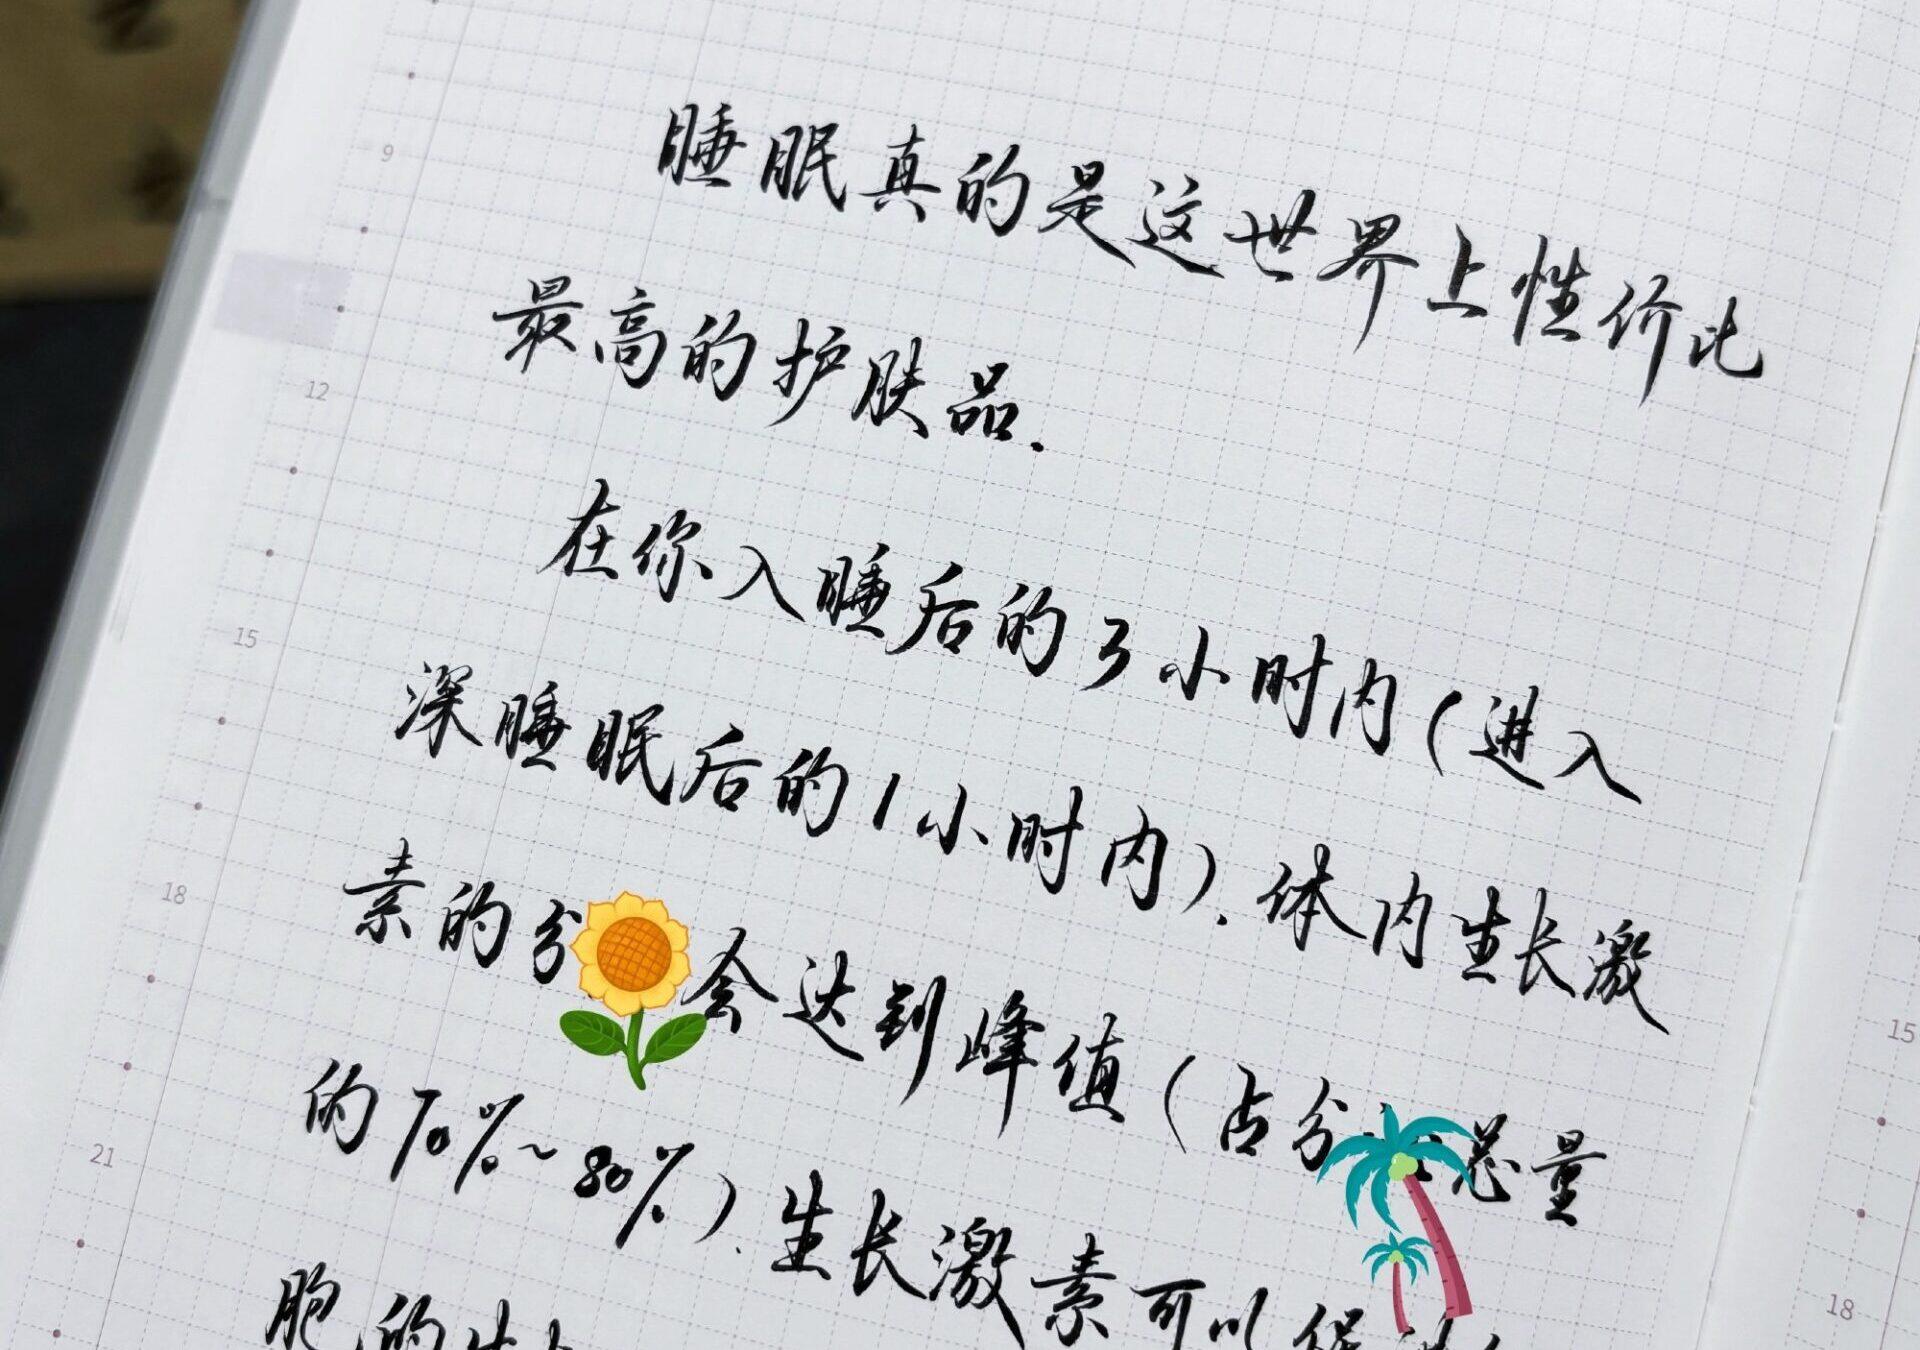 睡眠真的是这世界上性价比
最高的护肤品.
在你入睡后的3小时内(进入
深睡眠后的1小时内).体内生长激
素的分 会达到峰值(占分 总量
的70%~80%).生长激素可以促进
胞的生
9
12
15
18
21
15
18